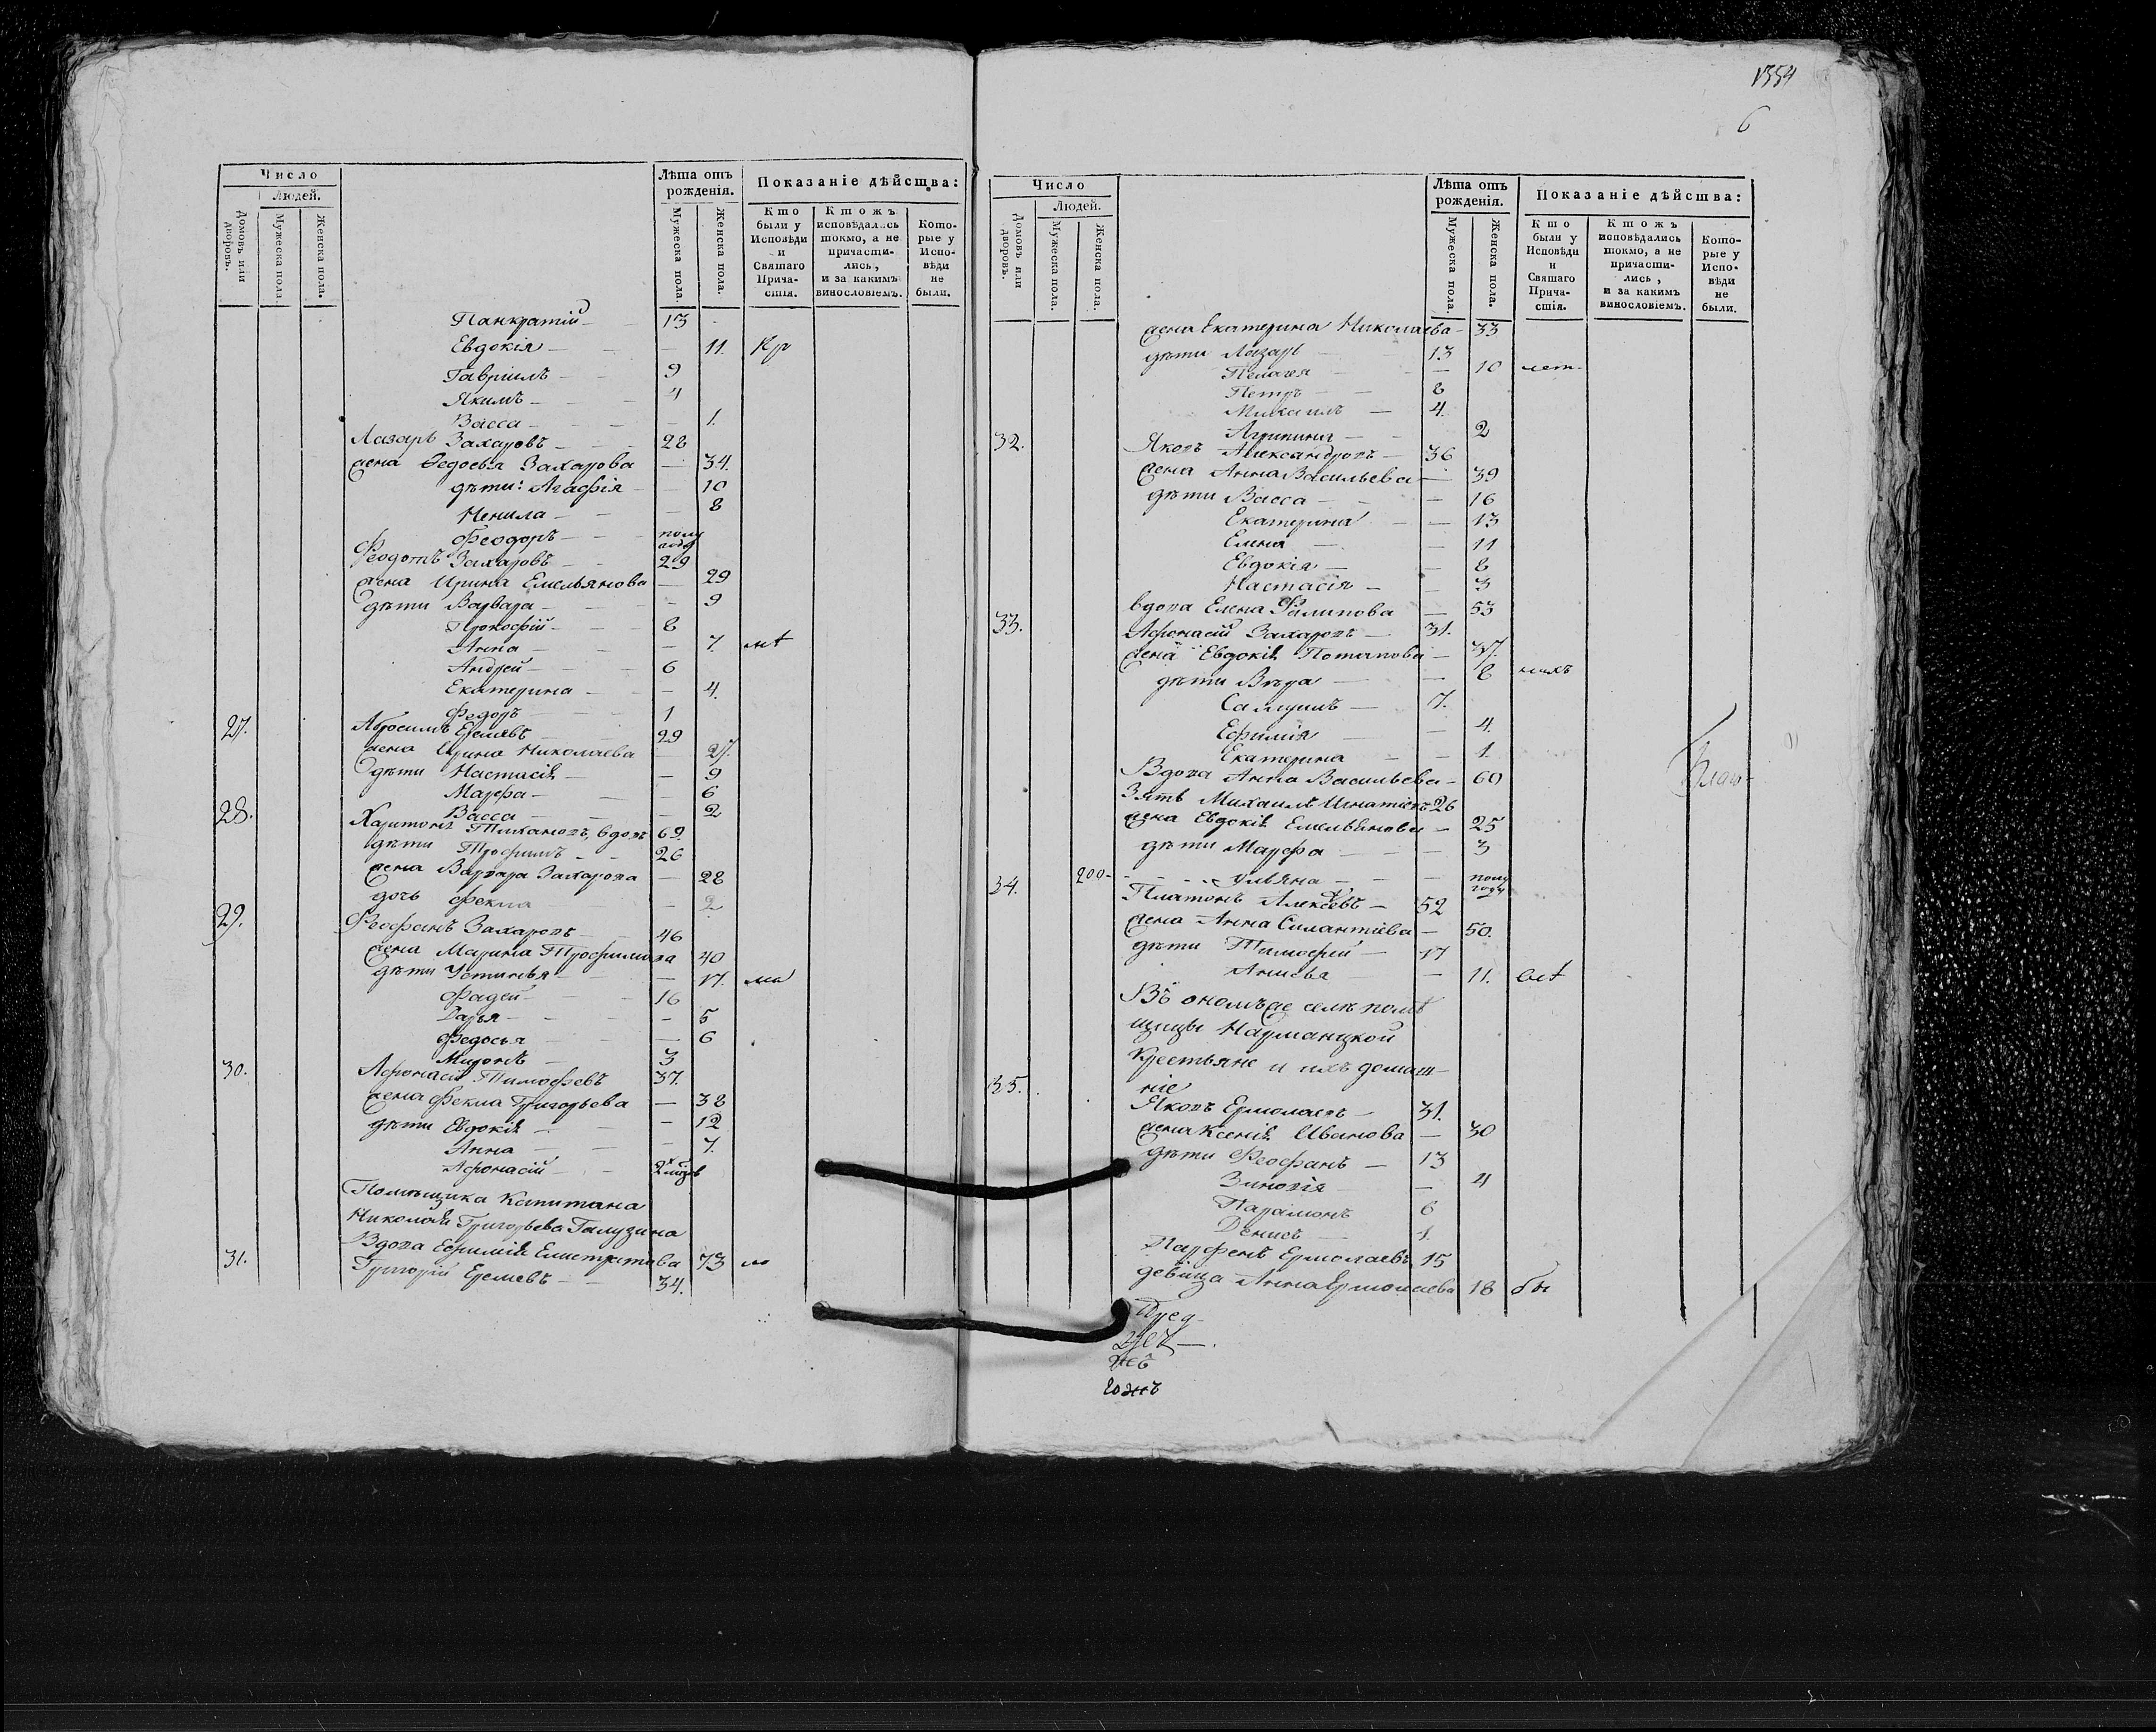 1354
6
Число
Людей.
Домовъ или дворовъ.
Мужеска пола.
Женска пола.
Лѣта отъ рожденія.
Мужеска пола.
Женска пола.
Показаніе дѣйства:
Кто были у Исповѣди и Святаго Прича-стія.
Ктожъ исповѣдались токмо, а не причасти-лись, и за какимъ винословіемъ.
Кото-рые у Испо-вѣди не были.
Панкратій — 13
Евдокія — 11.
Гавріилъ — 9
Якимъ — 4
Васса — 1.
Лазарь Захаровъ — 28
жена Федосья Захарова — 34.
дѣти: Агафія — 10
Ненила — 8
Феодоръ — полу года
Феодотъ Захаровъ — 29
жена Ирина Емельянова — 29
дѣти Варвара — 9
Прокофій — 8
Анна — 7.
Андрей — 6
Екатерина — 4.
Федоръ — 1
27. Абросимъ Еремѣевъ — 29
жена Ирина Николаева — 27.
дѣти Настасія — 9
Марфа — 6
Васса — 2
28. Харитонъ Тихановъ, вдовъ 69.
дѣти Трофимъ — 26
жена Варвара Захарова — 28
дочь Фекла — 2
29. Феофанъ Захаровъ — 46
жена Марина Трофимова 40
дѣти Устинья — 17.
Фадей — 16
Дарья — 5
Федосья — 6
Миронъ — 3
30. Афонасій Тимофѣевъ 37.
жена Фекла Григорьева — 38
дѣти Евдокія — 12
Анна — 7.
Афонасій — 2
Помѣщика Капитана
Николая Григорьева Галузина
Вдова Ефимія Елистратова 73
31. Григорій Еремѣевъ — 34.
Число
Людей.
Домовъ или дворовъ.
Мужеска пола.
Женска пола.
Лѣта отъ рожденія.
Мужеска пола.
Женска пола.
Показаніе дѣйства:
Кто были у Исповѣди и Святаго Прича-стія.
Ктожъ исповѣдались токмо, а не причасти-лись, и за какимъ винословіемъ.
Кото-рые у Испо-вѣди не были.
жена Екатерина Николаева — 33
дѣти Лазарь — 13
Пелагея — 10
Петръ — 8
Михаилъ — 4.
Агрипина — 2
32. Яковъ Александровъ — 36
жена Анна Васильева — 39
дѣти Васса — 16
Екатерина — 13
Елена — 11
Евдокія — 8
Настасія — 3
вдова Елена Филипова — 53
33. Афонасій Захаровъ — 31.
жена Евдокія Потапова — 37.
дѣти Вѣра — 8
Самуилъ — 7.
Ефимія — 4.
Екатерина — 1.
Вдова Анна Васильева — 60
Зять Михаилъ Игнатіевъ 26
жена Евдокія Емельянова — 25
дѣти Марфа — 3
200 — Ульяна — полу году
34. Платонъ Алексѣевъ — 52
жена Анна Силантіева — 50.
дѣти Тимофей — 17
Анисья — 11.
Въ ономъ же селѣ помѣ
щицы Нармацкой
Крестьяне и ихъ домаш-
ніе
35. Яковъ Ермолаевъ — 31.
жена Ксенія Иванова — 30
дѣти Феофанъ — 13
Зиновія — 4
Парамонъ 6
Денисъ — 1.
Парфенъ Ермолаевъ 15
девица Анна Ермолаева 18